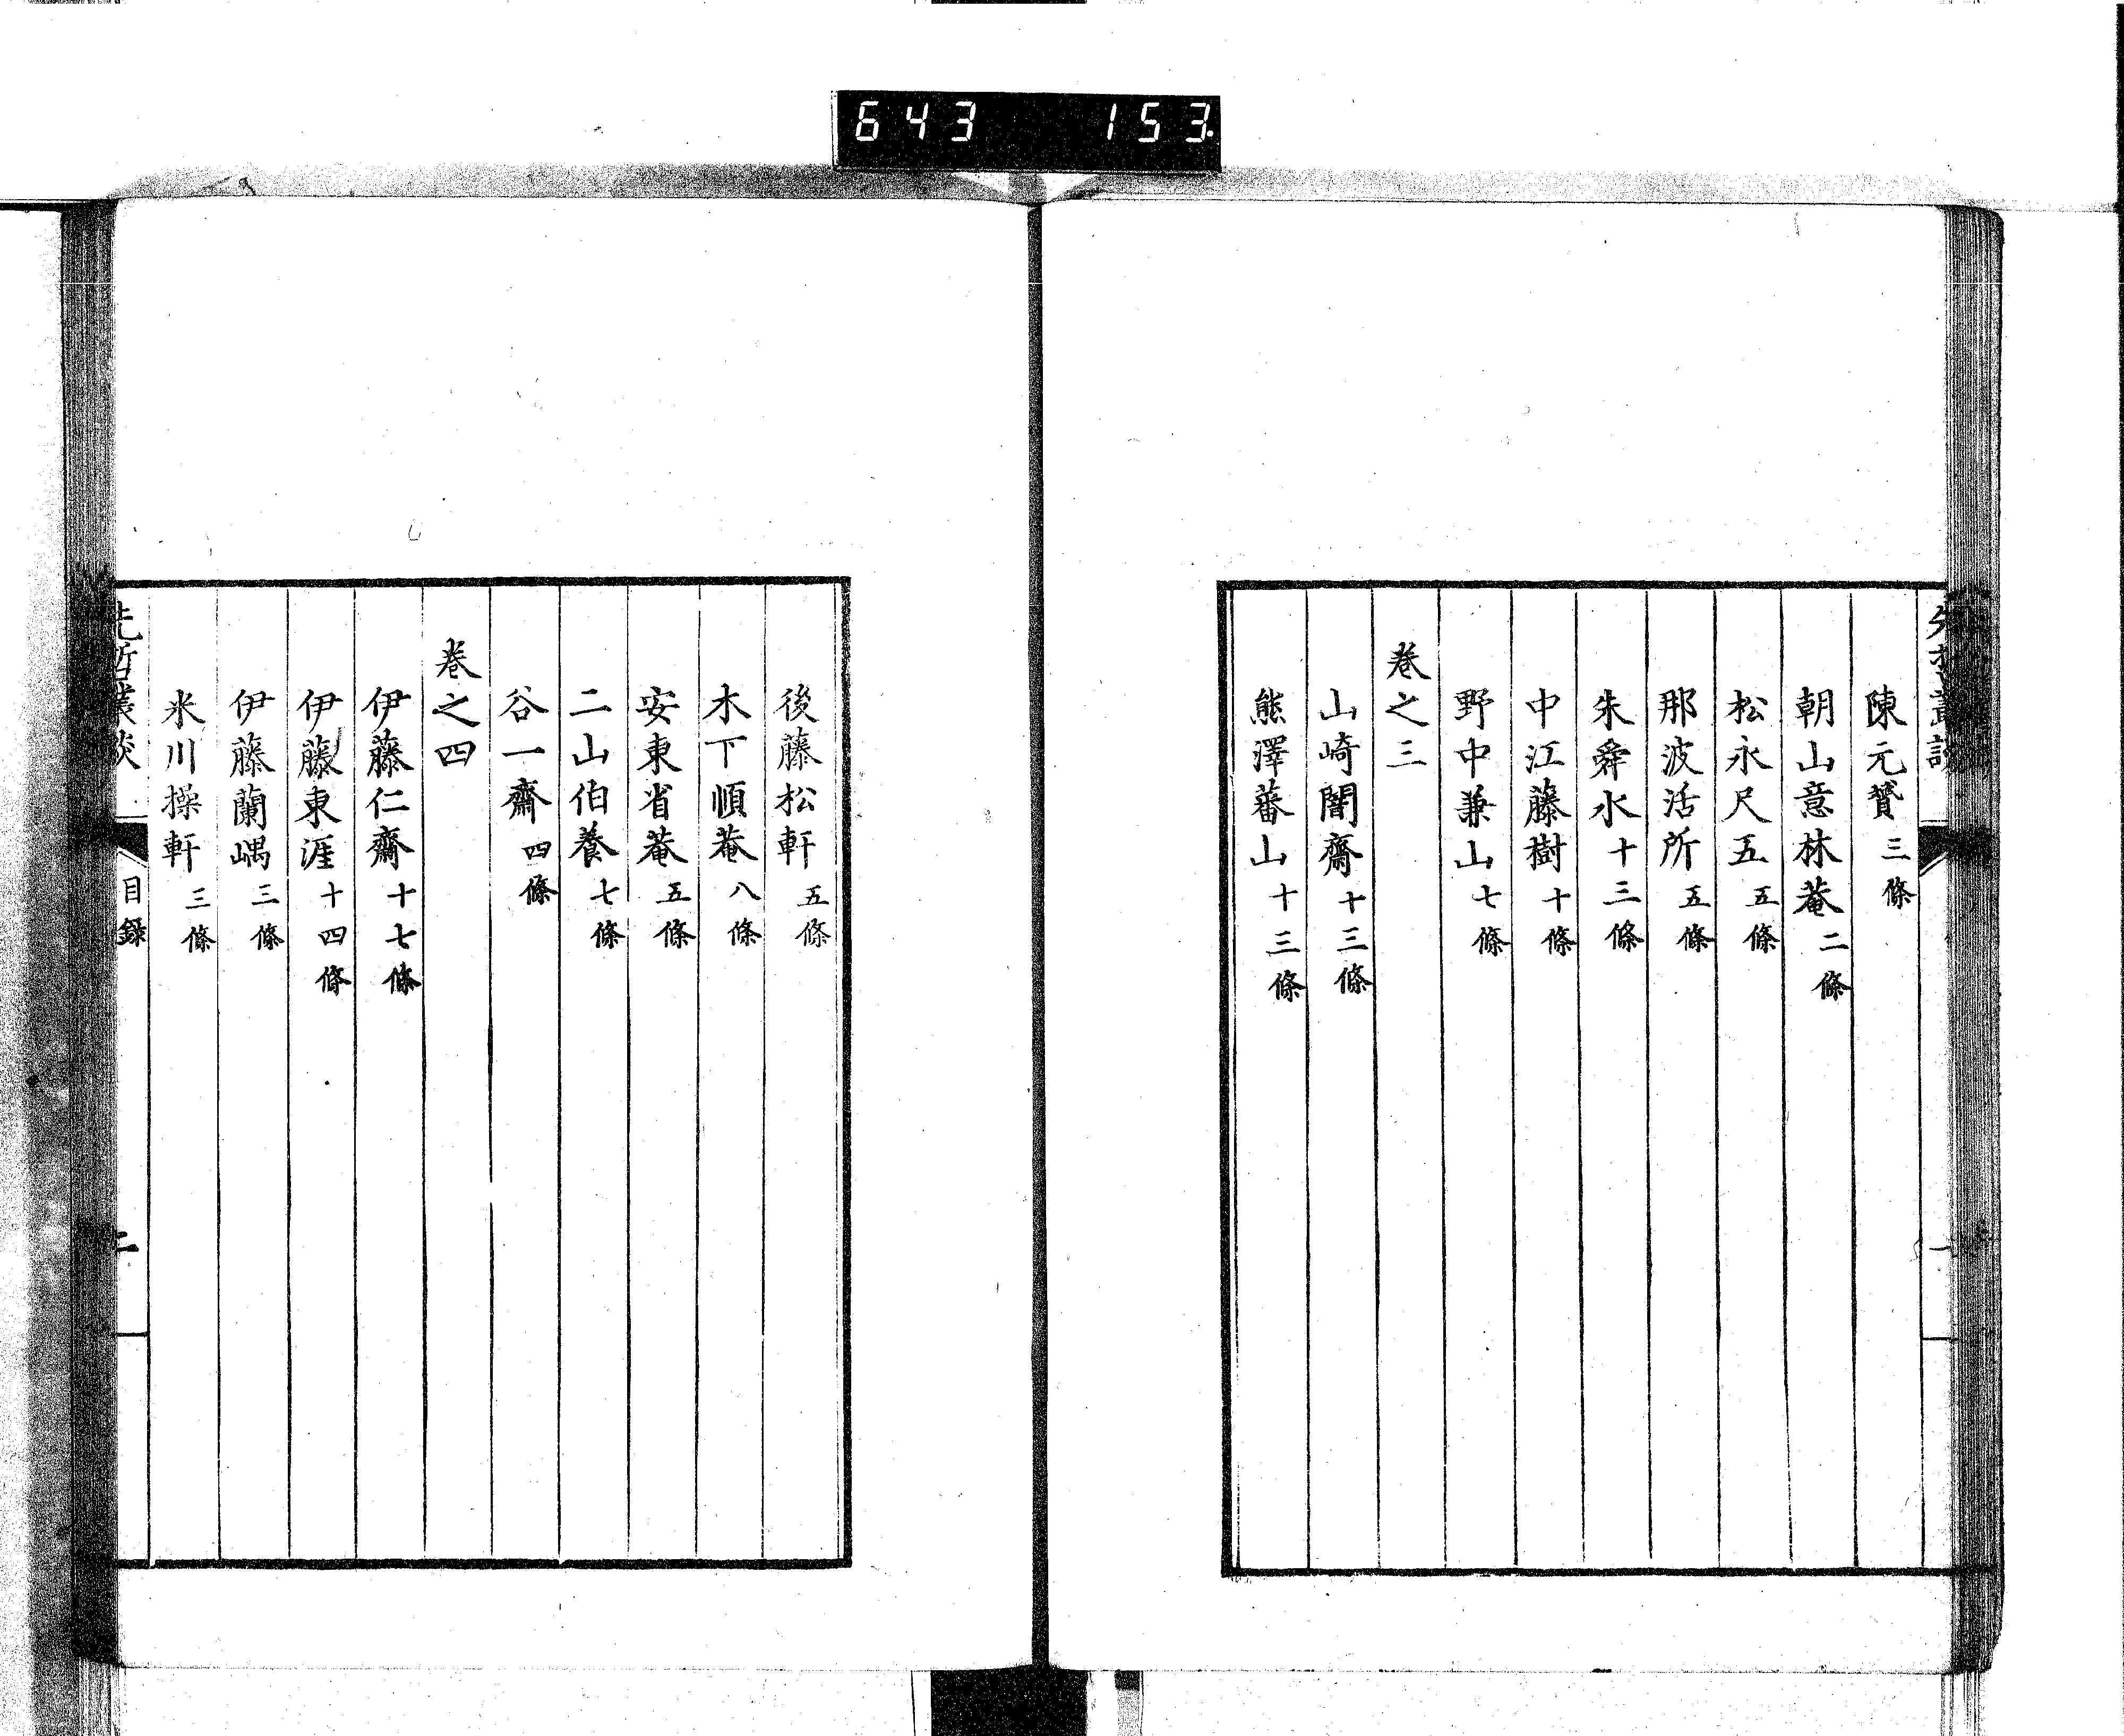 643 153.
陳元贇 三條
朝山意林菴 二條
松永尺五 五條
那波活所 五條
朱舜水 十三條
中江藤樹 十條
野中兼山 七條
卷之三
山崎闇齋 十三條
熊澤蕃山 十三條
後藤松軒 五條
木下順菴 八條
安東省菴 五條
二山伯養 七條
谷一齋 四條
卷之四
伊藤仁齋 十七條
伊藤東涯 十四條
伊藤蘭嵎 三條
米川操軒 三條
先哲叢談 一 目錄 二